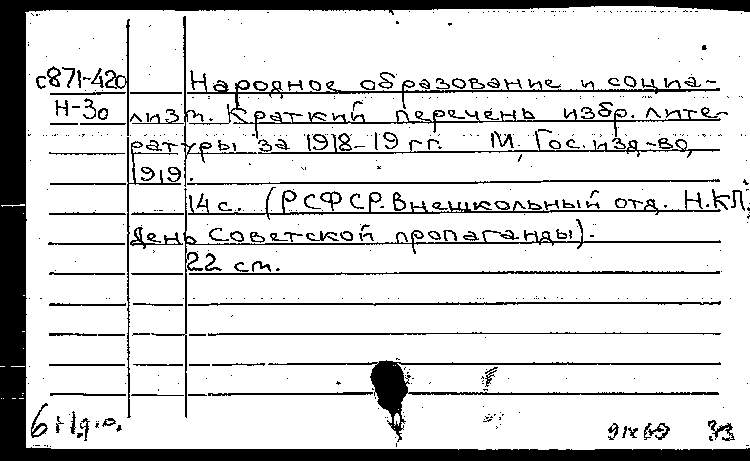 с871-420
Н-30
Народное образование и социа-
лизм. Краткий перечень избр. лите-
ратуры за 1918-19 гг. М, Гос. изд-во,
1919.
14 с. (РСФСР. Внешкольный отд. Н.КП,
День Советской пропаганды).
22 см.
33